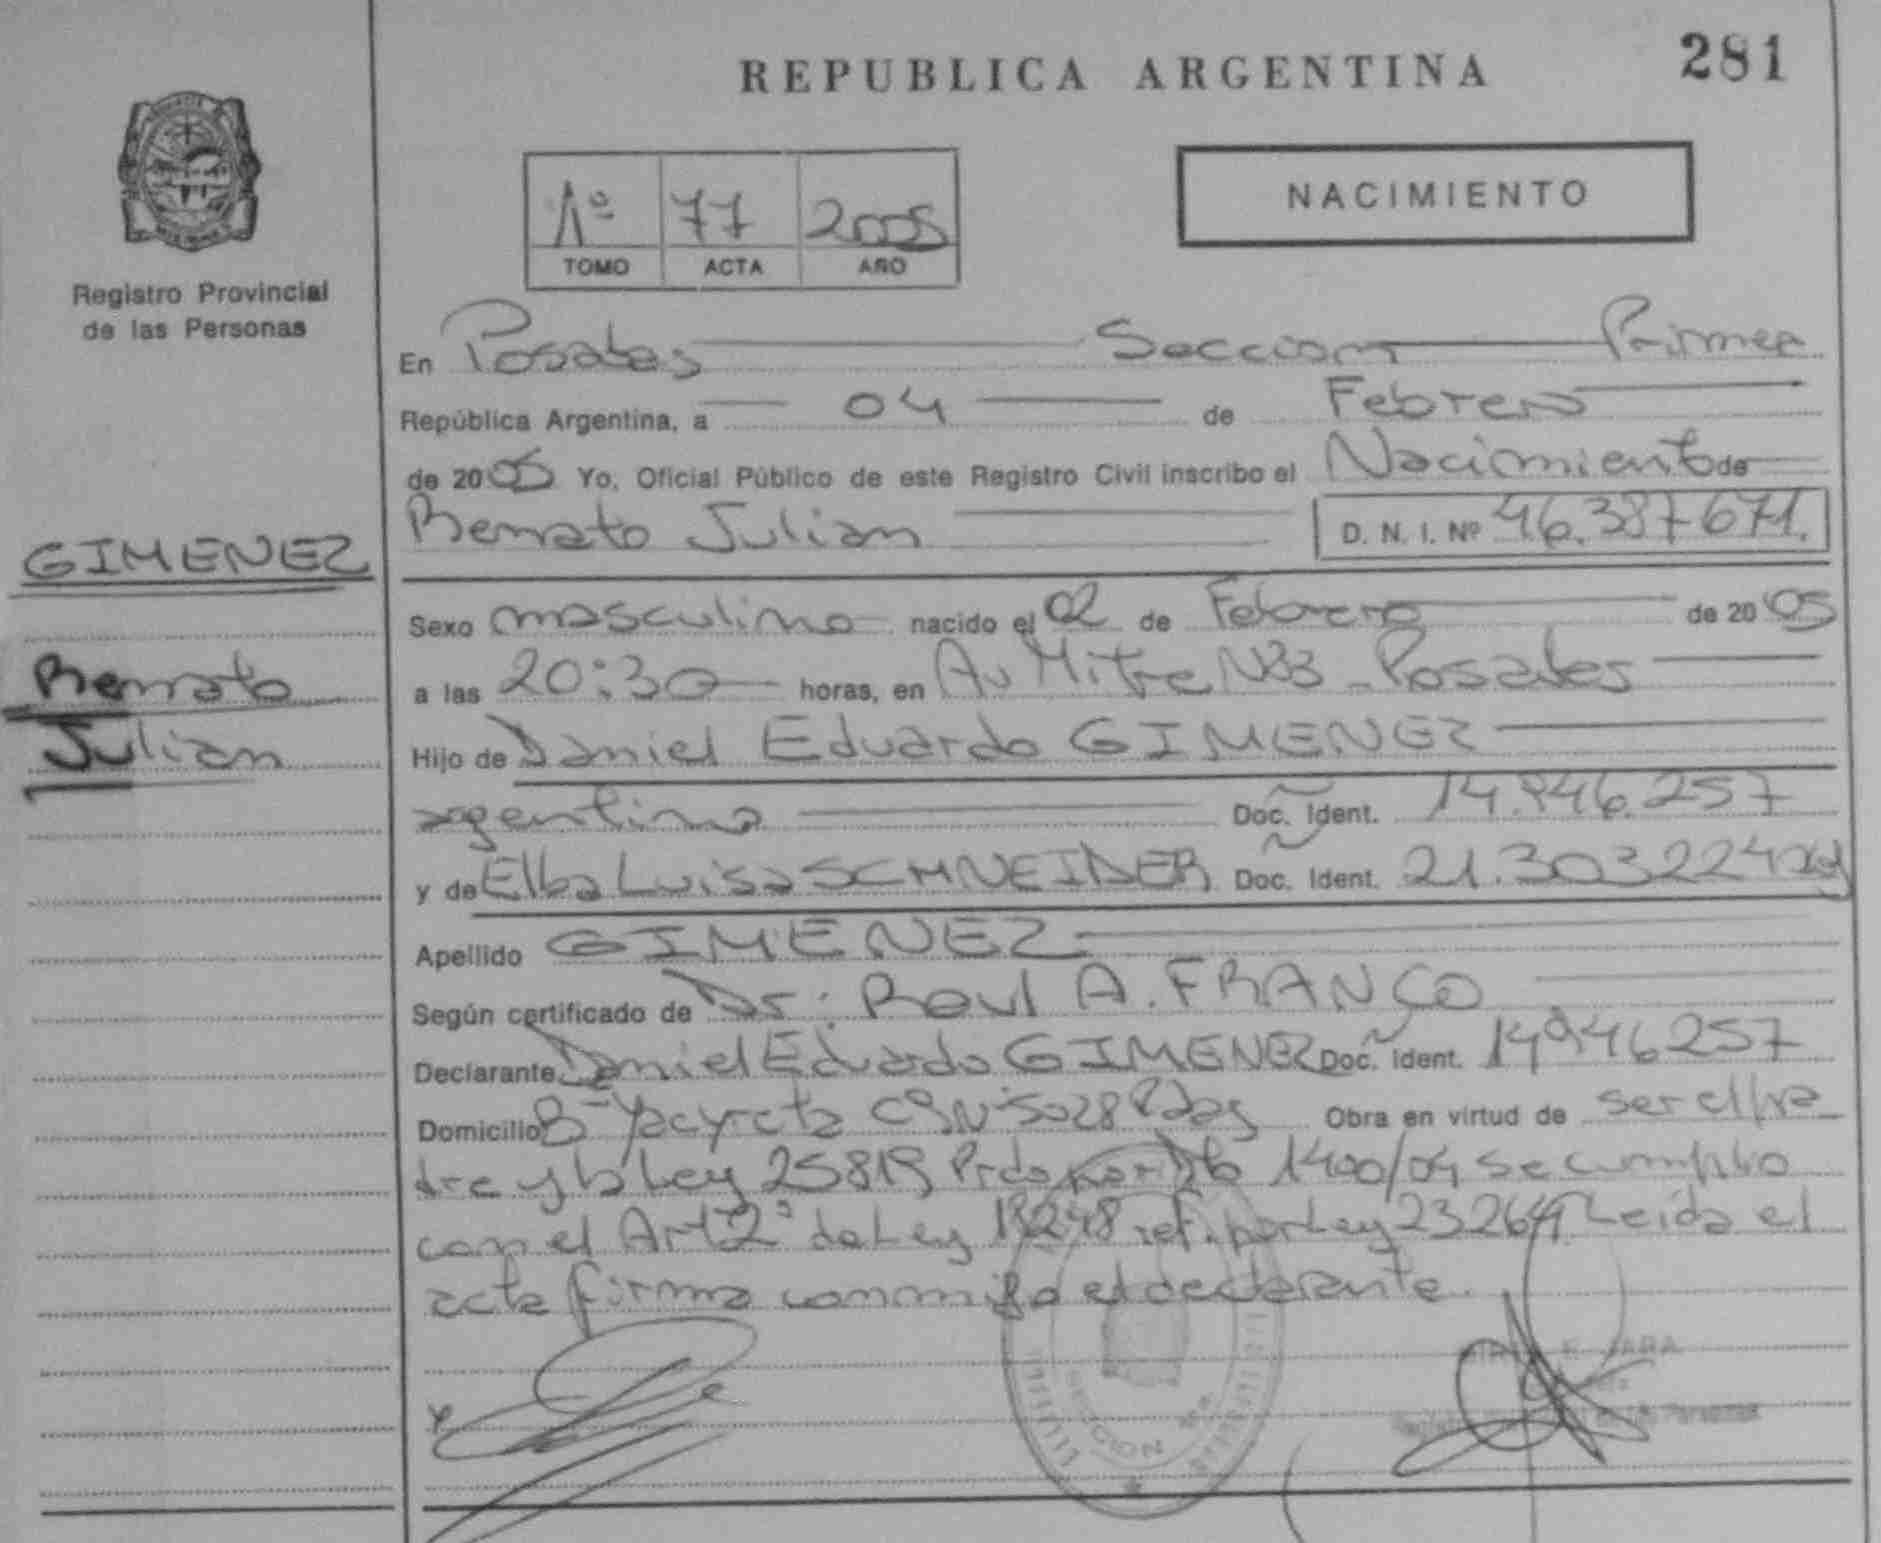 281
REPUBLICA ARGENTINA
NACIMIENTO
1º 77 2005
TOMO ACTA AÑO
Registro Provincial
de las Personas
En Posadas Seccion Primera
República Argentina, a 04 de Febrero
de 2005 Yo, Oficial Público de este Registro Civil inscribo el Nacimiento de
Renato Julian D. N. I. Nº 46.387671.
GIMENEZ
Renato
Julian
Sexo masculino nacido el 02 de Febrero de 2005
a las 20:30 horas, en Av Mitre N33 - Posadas
Hijo de Daniel Eduardo GIMENEZ
argentino Doc. Ident. 14.946.257
y de Elba Luisa SCHNEIDER Doc. Ident. 21.303224
Apellido GIMENEZ
Según certificado de Dr: Raul A. FRANCO
Declarante Daniel Eduardo GIMENEZ Doc. Ident. 14946257
Domicilio Bº Yacyreta CSNº5028 Pdas Obra en virtud de ser el pa
dre y la Ley 25819 1400/04 se cumplio
con el Art 2º de Ley 18248 ref. por Ley 23264 Leida el
acta firma conmigo el declarante.
E. JARA
SECCION